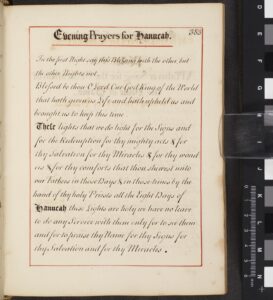 383
Evening Prayers for Hanucah.
In the first Night say this Blessing with the other but
the other Nights not.
Blessed be thou O Lord Our God King of the World
that hath given us Life and hath upheld us and
brought us to keep this time
These lights that we do light for the Signs and
for the Redemption for thy mighty acts & for
thy Salvation for thy Meracles & for thy wond
ers & for thy comforts that thou shewed unto
our Fathers in those Days & in these times by the
hand of thy holy Priests all the Eight Days of
Hanucah these Lights are holy we have no leave
to do any Service with them only for to see them
and for to praise thy Name for thy Signs for
thy Salvation and for thy Meracles.